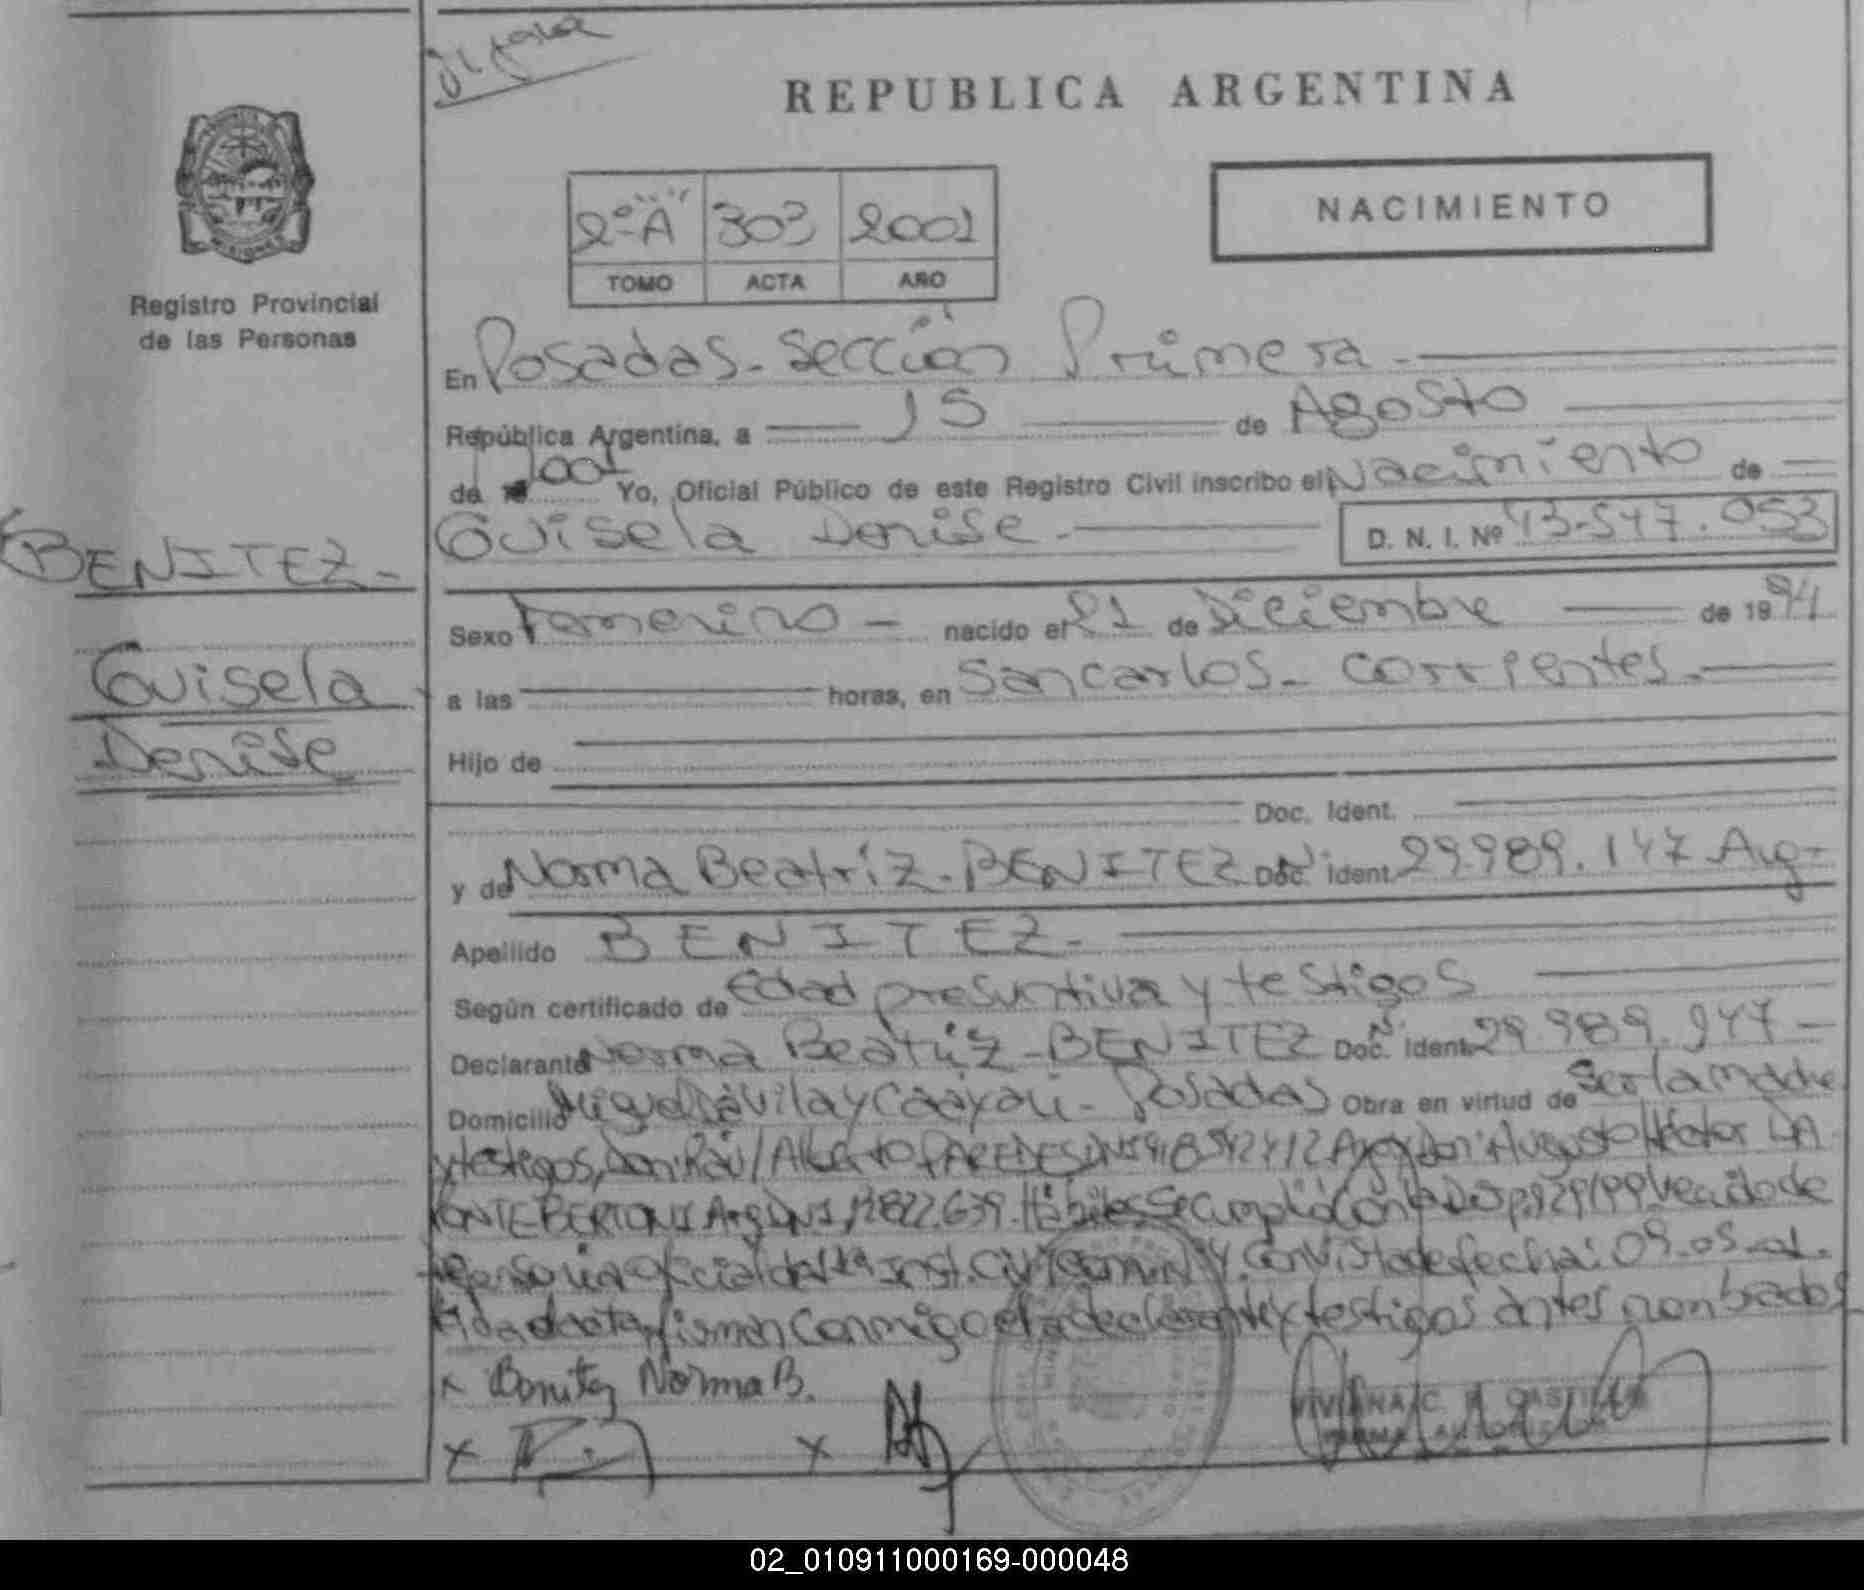 REPUBLICA ARGENTINA
NACIMIENTO
2º "A" 303 2001
TOMO ACTA AÑO
MISIONES
Registro Provincial
de las Personas
En Posadas - Sección Primera -
República Argentina, a 15 de Agosto
de 2001 Yo, Oficial Público de este Registro Civil inscribo el Nacimiento de
Guisela Denise - D. N. I. Nº 43-547.053
BENITEZ -
Guisela
Denise
Sexo Femenino - nacido el 21 de Diciembre de 1994
a las horas, en San Carlos - Corrientes -
Hijo de
Doc. Ident.
y de Norma Beatriz - BENITEZ Doc. Ident. 29.989.147 Arg -
Apellido BENITEZ -
Según certificado de Edad presuntiva y testigos
Declarante Norma Beatriz - BENITEZ Doc. Ident. 29.989.947 -
Domicilio Miguel Dávila y Caayarí - Posadas Obra en virtud de ser la madre
y testigos, Don: Raúl Alberto PAREDES DNI Arg y Don: Augusto Héctor DA
PONTE BERTONI Arg DNI 822.639. Hábiles Se Cumplió Con
oficial de Inst. Civ. Com. Con Vista de fecha: 09-05-01.
Leída el acta, firman Conmigo la declarante y testigos antes nombrados
x Benitez Norma B.
x
x
VIVIANA C. CASTILLO
02_010911000169-000048